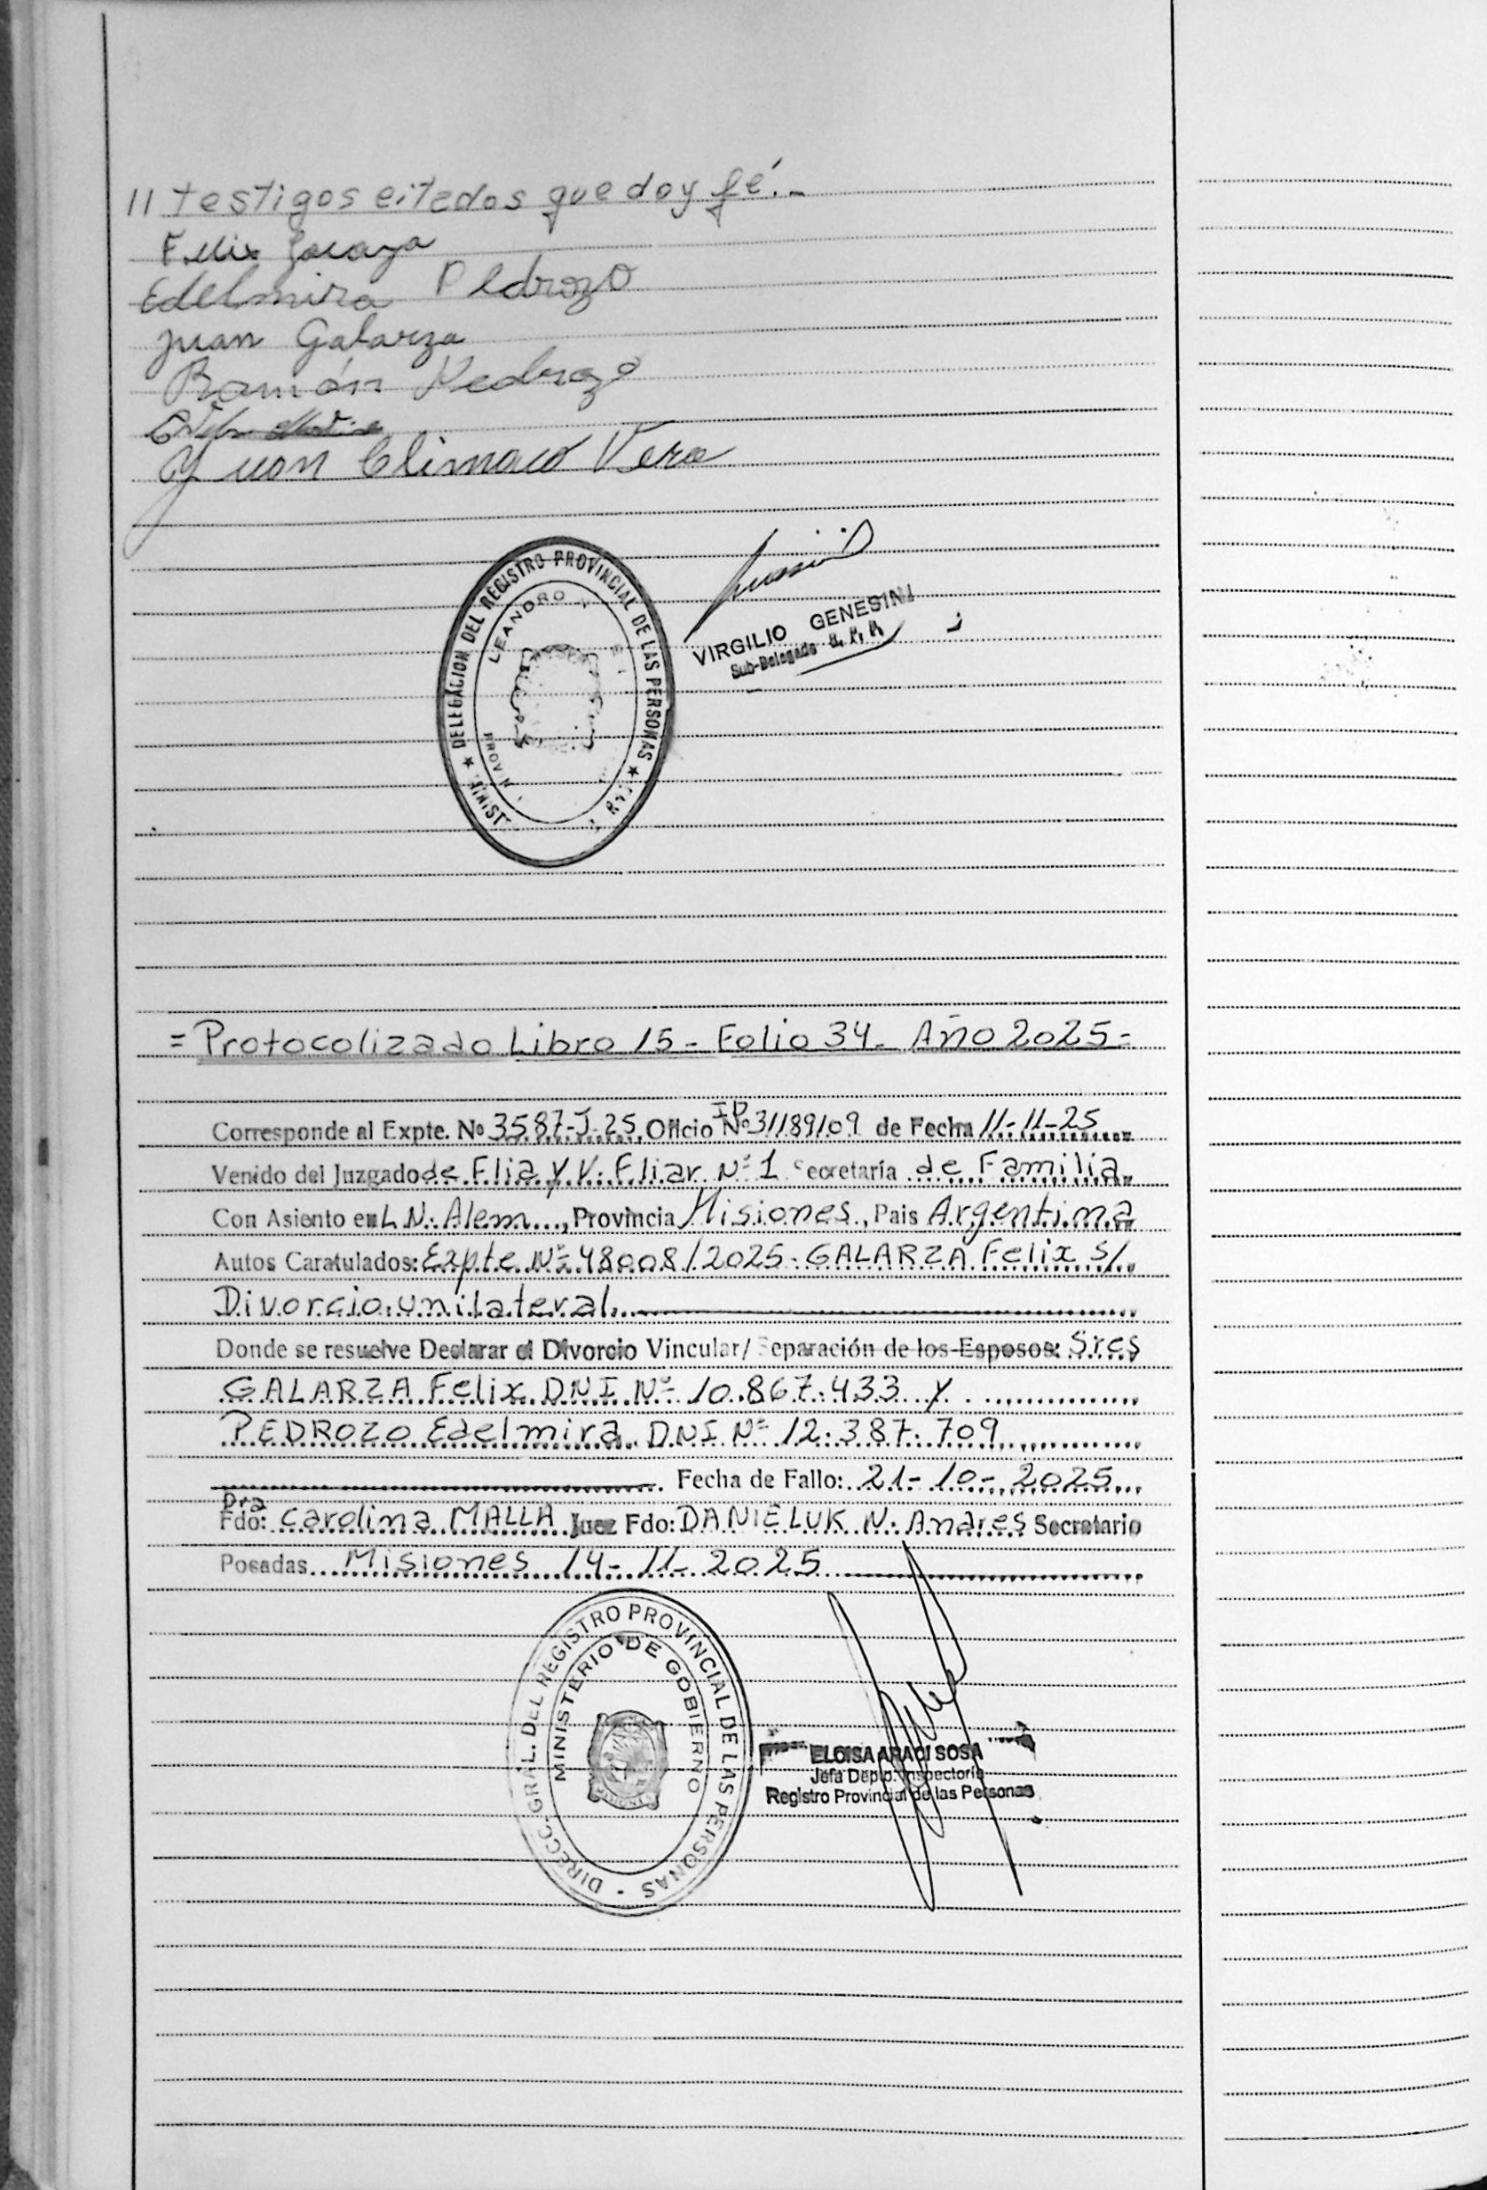 // testigos citados que doy fé.-
Felix
Edelmira Pedrozo
Juan Galarza
Ramón Pedrozo
Juan Climaco Vera
DELEGACION DEL REGISTRO PROVINCIAL DE LAS PERSONAS
LEANDRO
VIRGILIO GENESINI
Sub-Delegado R. P. P.
= Protocolizado Libro 15 - Folio 34 - Año 2025 =
Corresponde al Expte. Nº 3587-J-25, Oficio ID Nº 31189109 de Fecha 11-11-25
Venido del Juzgado de Flia y V. Fliar Nº 1 Secretaría de Familia
Con Asiento en L.N. Alem, Provincia Misiones, Pais Argentina
Autos Caratulados: Expte Nº 48008/2025. GALARZA Felix s/
Divorcio unilateral
Donde se resuelve Declarar el Divorcio Vincular/ Separación de los Esposos: Sres
GALARZA Felix DNI Nº 10.867.433 y
PEDROZO Edelmira DNI Nº 12.387.709
Fecha de Fallo: 21-10-2025
Fdo: Dra Carolina MALLA Juez Fdo: DANIELUK N. Andres Secretario
Posadas Misiones 14-11-2025
DIRECC. GRAL. DEL REGISTRO PROVINCIAL DE LAS PERSONAS
MINISTERIO DE GOBIERNO
ELOISA ARACI SOSA
Jefa Depto. Inspectoría
Registro Provincial de las Personas